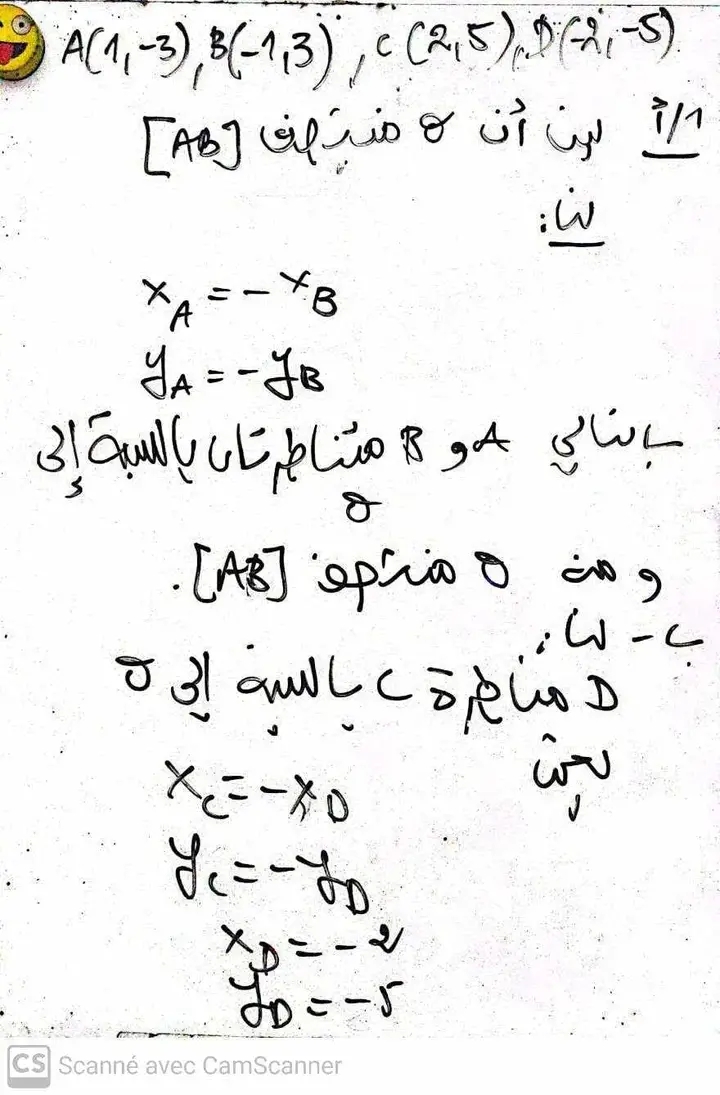 A(1,-3), B(-1,3), C(2,5), D(-2,-5)
1/أ لبين أن O منتصف [AB]
لنا:
x_A = -x_B
y_A = -y_B
بالتالي A و B متناظرتان بالنسبة إلى
O
و منه O منتصف [AB].
ب - لنا:
D مناظرة C بالنسبة إلى O
يعني
x_C = -x_D
y_C = -y_D
x_D = -2
y_D = -5
CS Scanné avec CamScanner